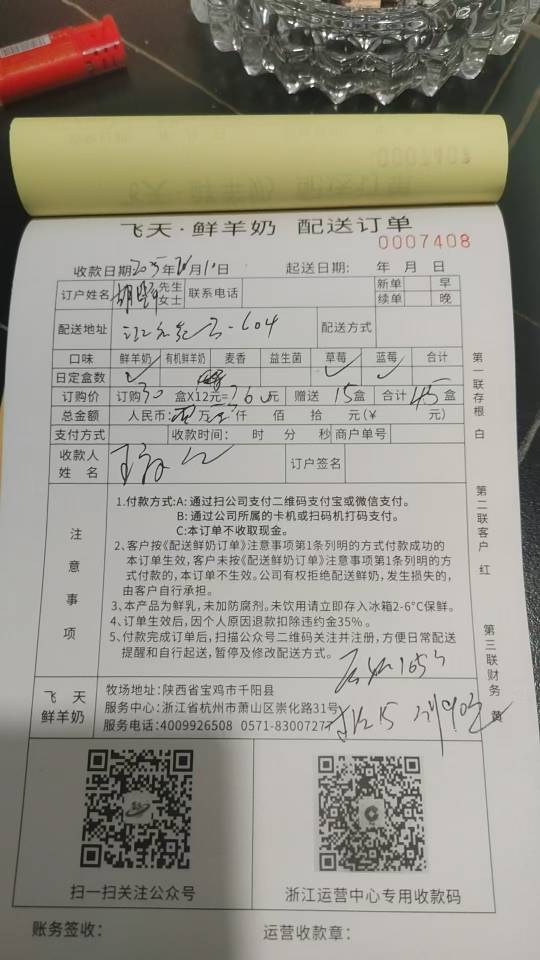 飞天·鲜羊奶 配送订单
0007408
收款日期:2025年 月 日 起送日期: 年 月 日
订户姓名 先生 女士 联系电话 新单 早
续单 晚
配送地址 3-604 配送方式
口味 鲜羊奶 有机鲜羊奶 麦香 益生菌 草莓 蓝莓 合计
日定盒数 ✓ ✓ ✓
订购价 订购30盒X12元=360元 赠送15盒 合计45盒
总金额 人民币: 万 仟 佰 拾 元(¥ 元)
支付方式 收款时间: 时 分 秒 商户单号
收款人姓名 订户签名
注意事项
1.付款方式:A: 通过扫公司支付二维码支付宝或微信支付。
B: 通过公司所属的卡机或扫码机打码支付。
C:本订单不收取现金。
2、客户按《配送鲜奶订单》注意事项第1条列明的方式付款成功的
本订单生效，客户未按《配送鲜奶订单》注意事项第1条列明的方
式付款的，本订单不生效。公司有权拒绝配送鲜奶，发生损失的，
由客户自行承担。
3、本产品为鲜乳，未加防腐剂。未饮用请立即存入冰箱2-6°C保鲜。
4、订单生效后，因个人原因退款扣除违约金35%。
5、付款完成订单后，扫描公众号二维码关注并注册，方便日常配送
提醒和自行起送，暂停及修改配送方式。
165
15 90
飞天鲜羊奶
牧场地址:陕西省宝鸡市千阳县
服务中心:浙江省杭州市萧山区崇化路31号
服务电话:4009926508 0571-83007277
第一联存根 白
第二联客户 红
第三联财务 黄
扫一扫关注公众号 浙江运营中心专用收款码
账务签收: 运营收款章: